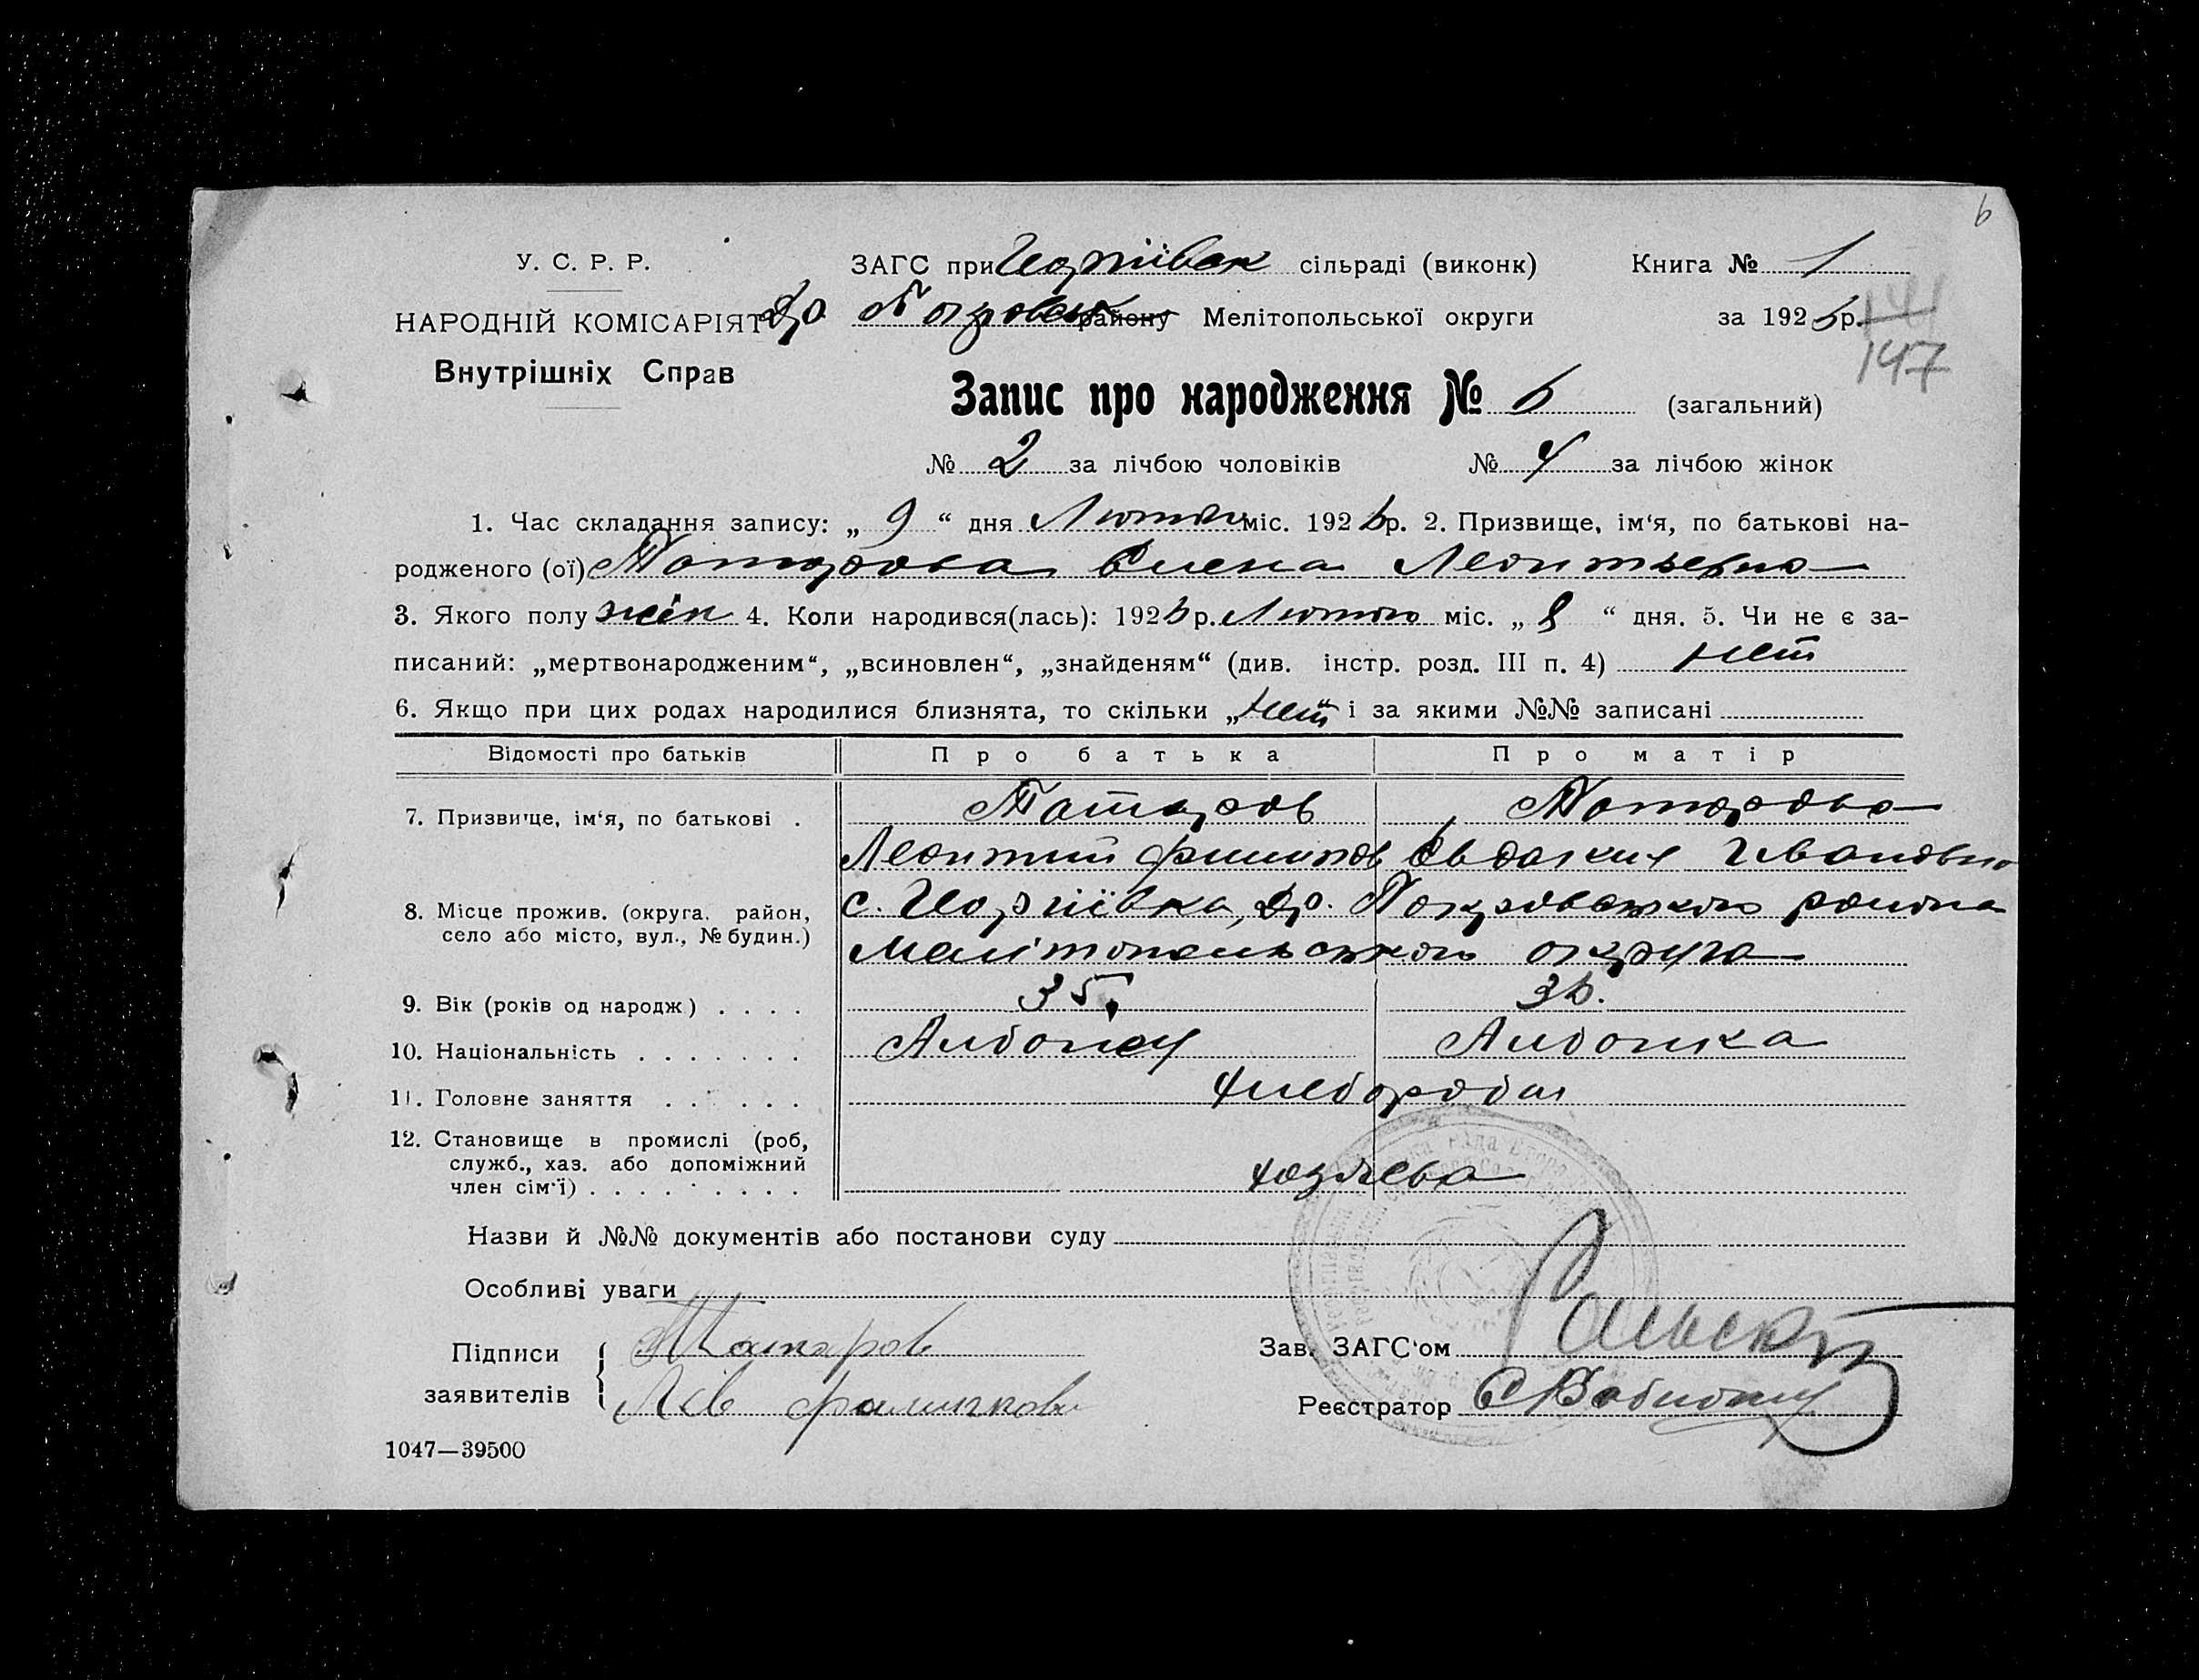 6
У. С. Р. Р.
ЗАГС при Георгіївск сільраді (виконк)
Книга № 1
НАРОДНІЙ КОМІСАРІЯТ
др Покровск району Мелітопольської округи
за 1926 р.
141
147
Внутрішніх Справ
Запис про народження № 6 (загальний)
№ 2 за лічбою чоловіків № 4 за лічбою жінок
1. Час складання запису: „ 9 “ дня Лютого міс. 1926 р. 2. Призвище, ім‘я, по батькові на-
родженого (ої) Татарова Елена Леонтьевна
3. Якого полу жін 4. Коли народився(лась): 1926 р. Лютого міс. „ 8 “ дня. 5. Чи не є за-
писаний: „мертвонародженим“, „всиновлен“, „знайденям“ (див. інстр. розд. III п. 4) нет
6. Якщо при цих родах народилися близнята, то скільки „нет“ і за якими №№ записані
Відомості про батьків Про батька Про матір
7. Призвище, ім‘я, по батькові . Татаров Татарова
Леонтий Филипов Евдокия Ивановна
8. Місце прожив. (округа, район,
село або місто, вул., № будин.)
с. Георгіївка, др. Покровского района
Мелітопольского округа
9. Вік (років од народж) . . . . 35. 36.
10. Національність . . . . . . . Албанец Албонка
11. Головне заняття . . . . . . Хлебороби
12. Становище в промислі (роб,
служб., хаз. або допоміжний
член сім‘ї) . . . . . . . . .
хозяева
Назви й №№ документів або постанови суду
Особливі уваги
Підписи
заявителів
Татаров
Лев
Зав. ЗАГС‘ом
Реєстратор
1047—39500